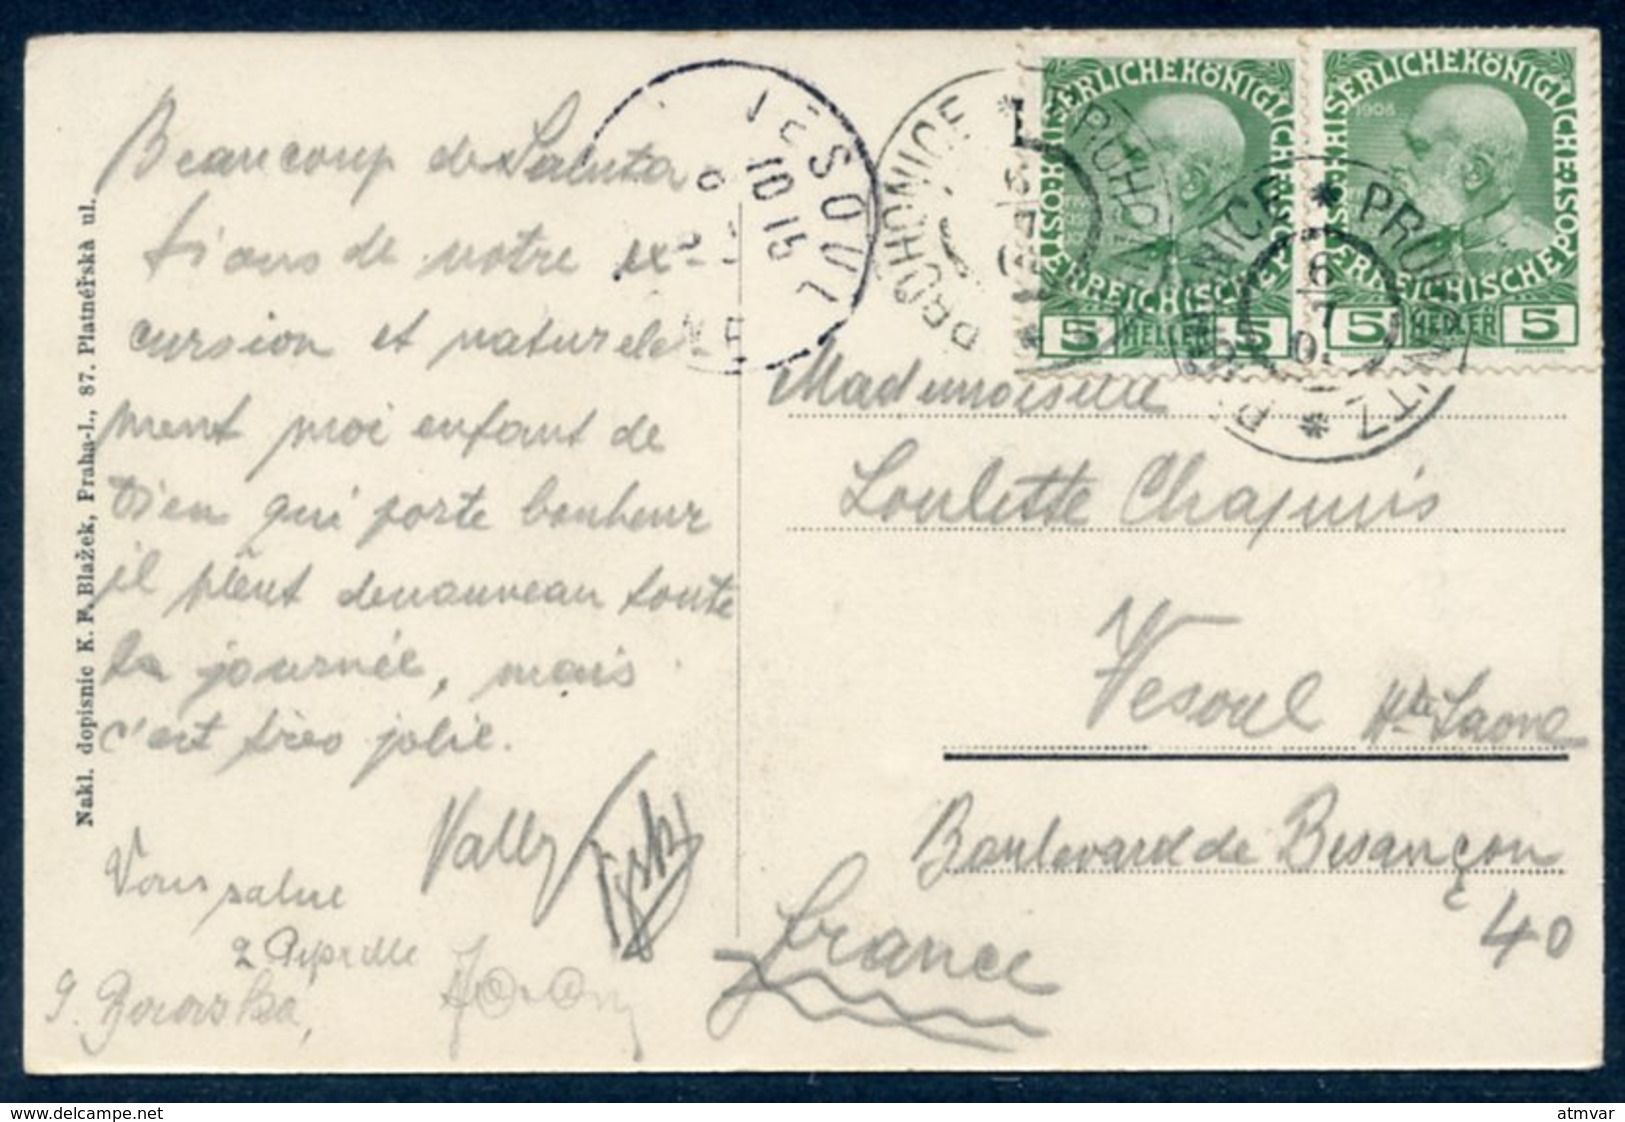 Beaucoup de Saluta
tions de notre ex-
cursion et naturele-
ment moi enfant de
bien qui porte bonheur
il pleut denouveau toute
la journée, mais
c'est très jolie.
Vally
Vous salue
Nakl. dopisnic K. F. Blažek, Praha-I., 87. Platnéřská ul.
VESOUL
10 15
PRŮHONICE * PRUHONITZ *
6
7
KAISERLICHE KÖNIGLICHE ÖSTERREICHISCHE POST
5 HELLER 5
KAISERLICHE KÖNIGLICHE ÖSTERREICHISCHE POST
1908
5 HELLER 5
PRŮHONICE * PRUHONITZ *
6
7
Mademoiselle
Loulette Chapuis
Vesoul Hte Saone
Boulevard de Besançon
40
France
atmvar